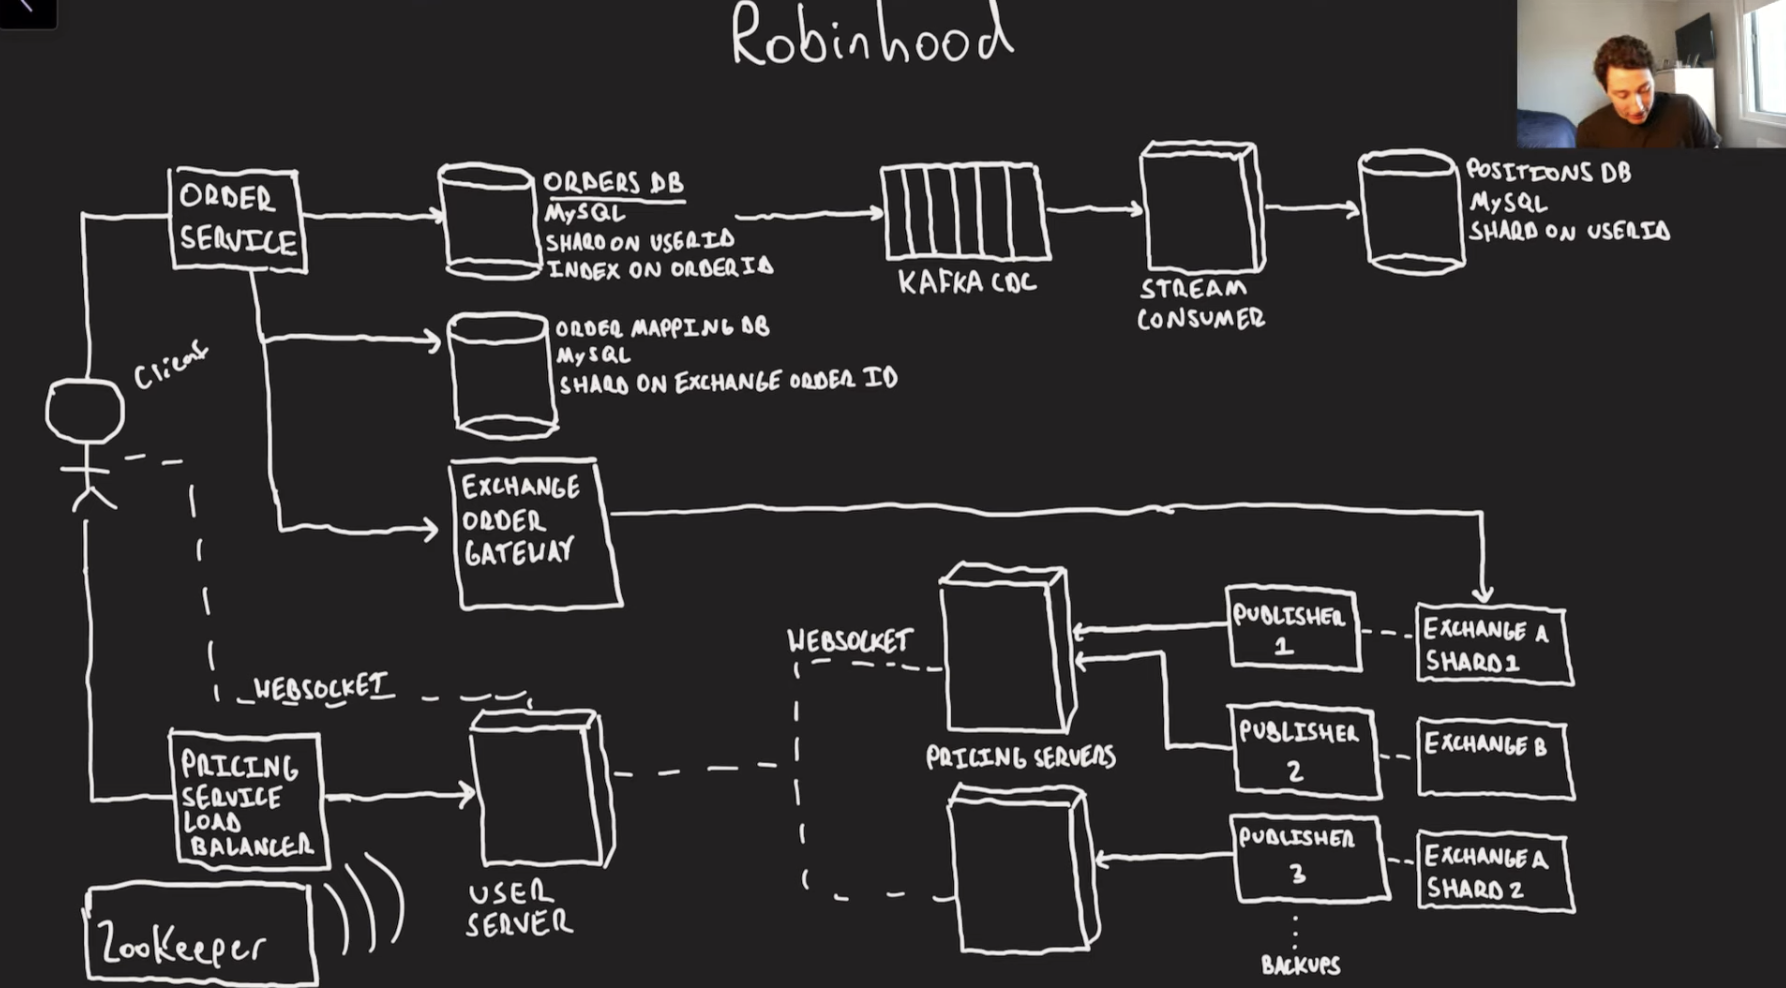 Robinhood
ORDER
SERVICE
ORDERS DB
MySQL
SHARD ON USERID
INDEX ON ORDERID
KAFKA CDC
STREAM
CONSUMER
POSITIONS DB
MySQL
SHARD ON USERID
Client
ORDER MAPPING DB
MySQL
SHARD ON EXCHANGE ORDER ID
EXCHANGE
ORDER
GATEWAY
WEBSOCKET
PRICING
SERVICE
LOAD
BALANCER
ZooKeeper
USER
SERVER
WEBSOCKET
PRICING SERVERS
PUBLISHER
1
EXCHANGE A
SHARD 1
PUBLISHER
2
EXCHANGE B
PUBLISHER
3
EXCHANGE A
SHARD 2
BACKUPS